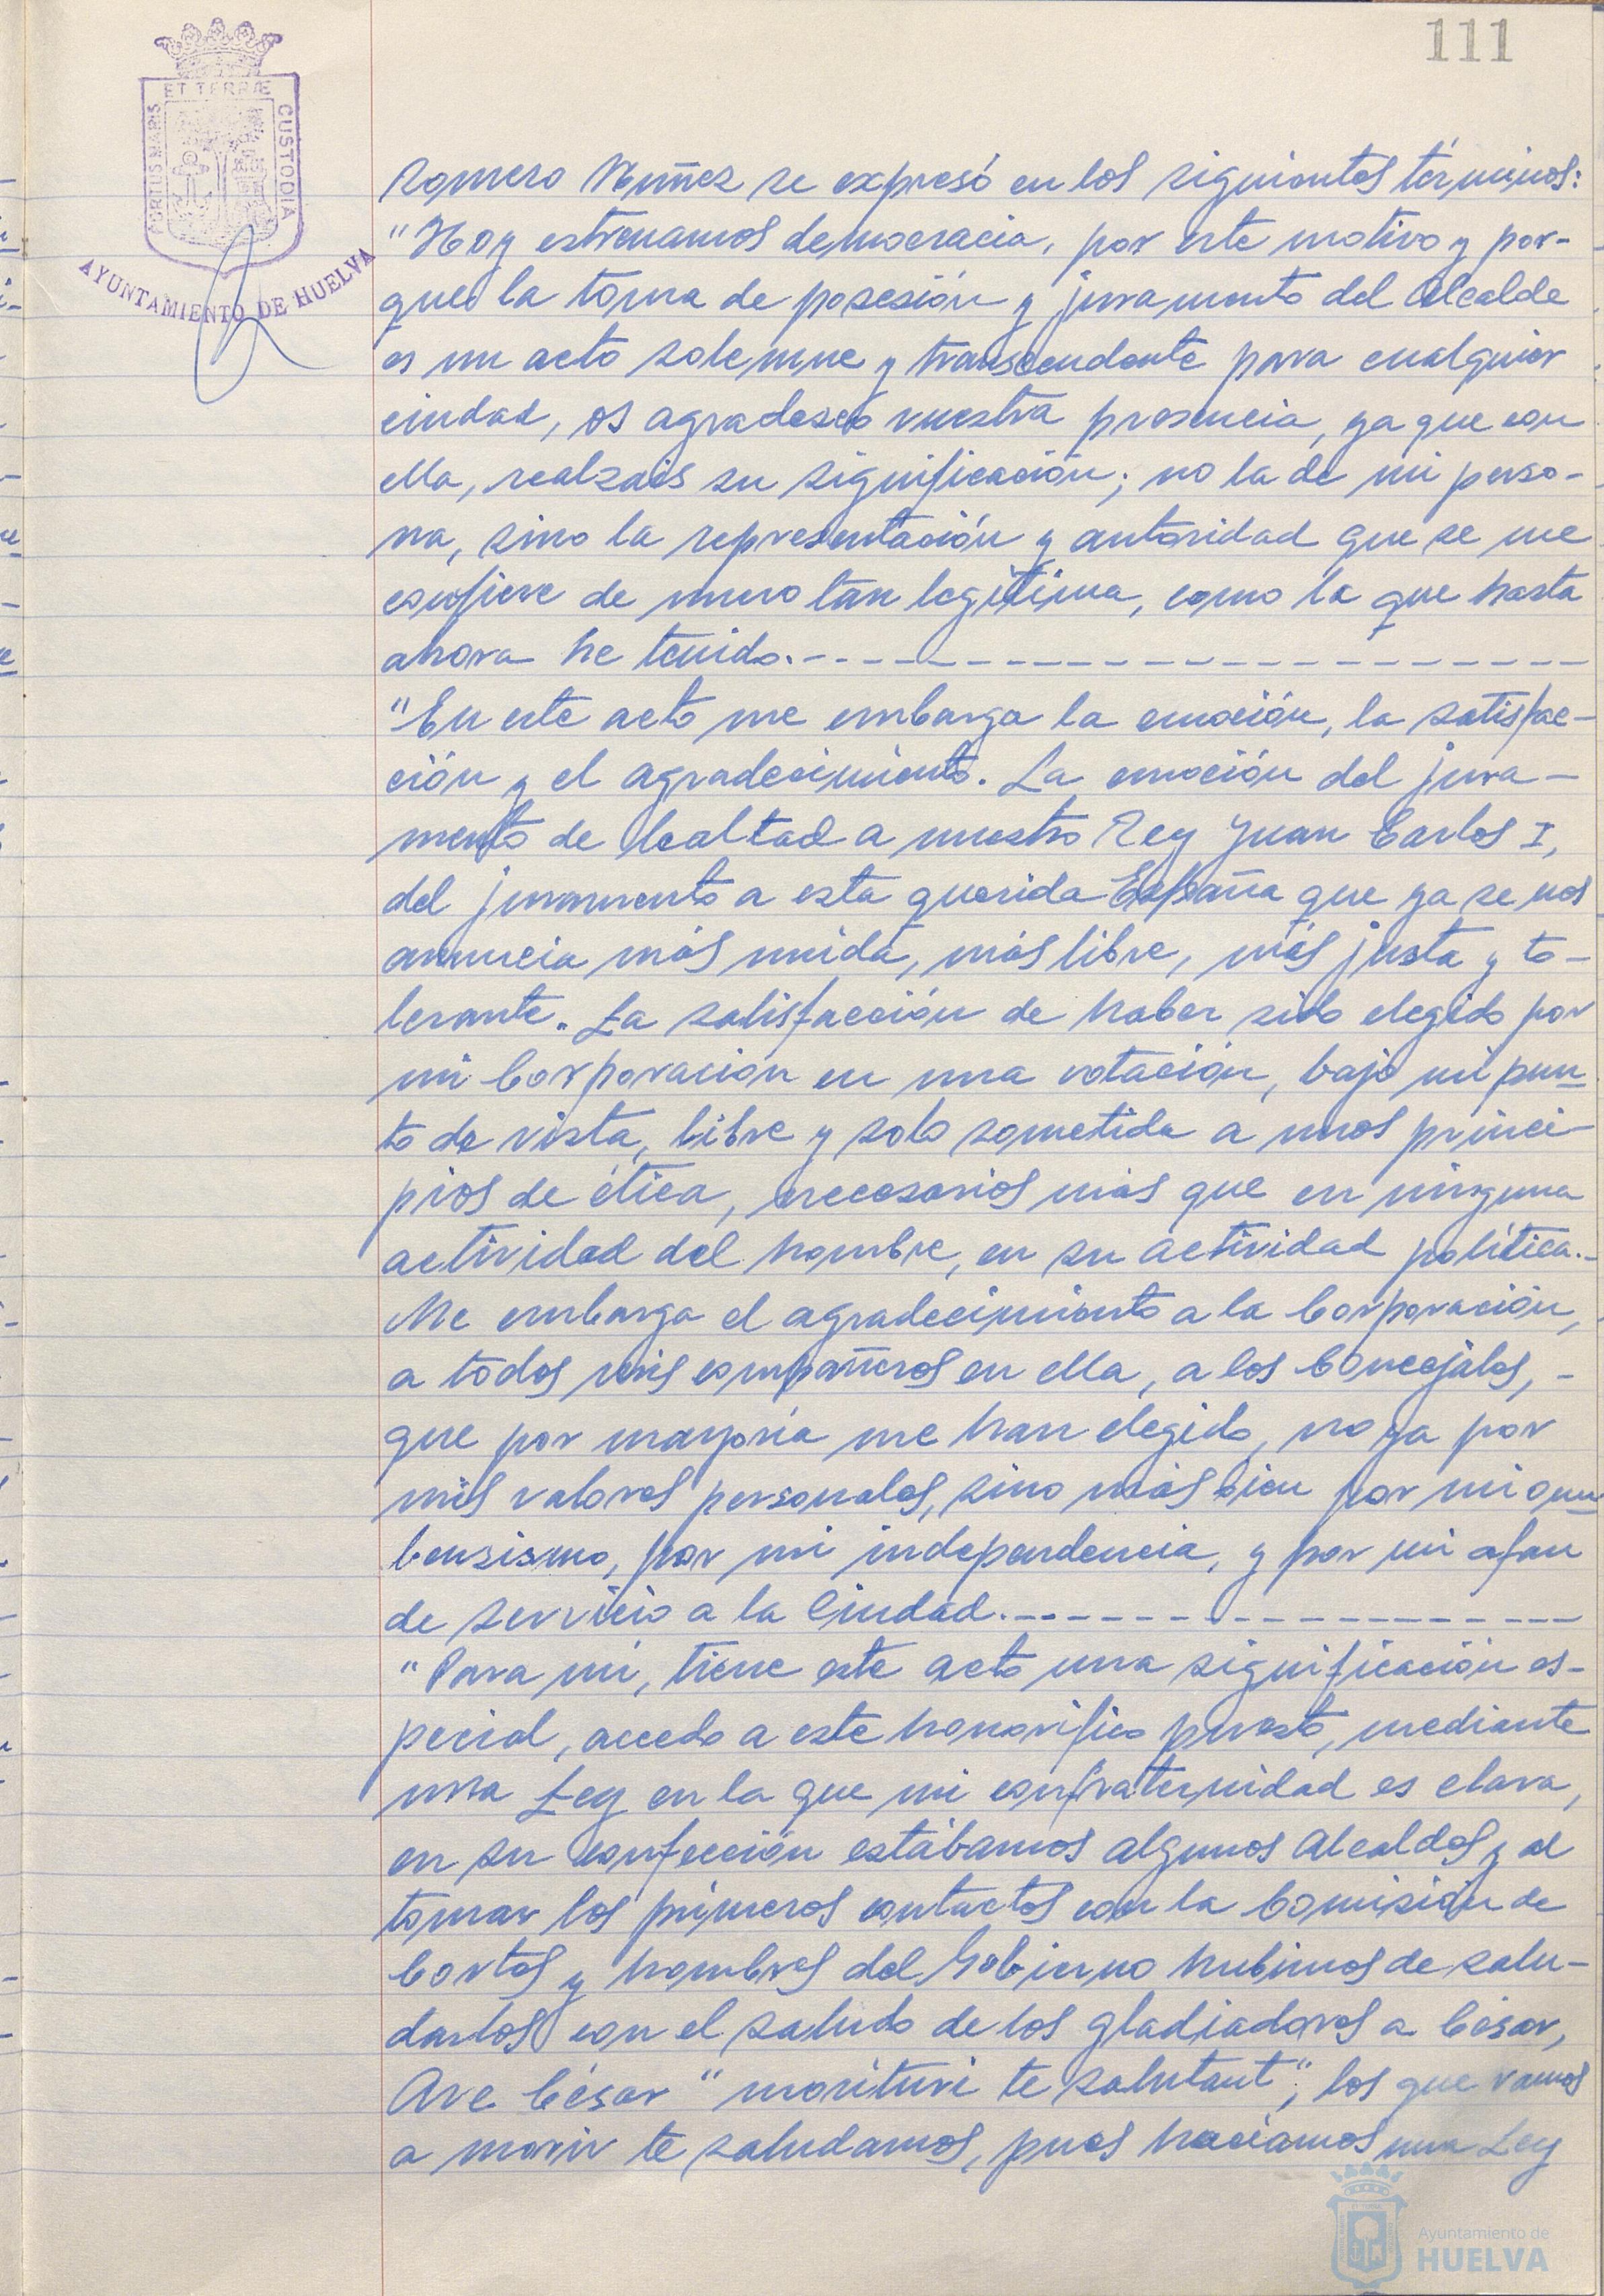 111
ET TERRÆ
PORTUS MARIS
CUSTODIA
AYUNTAMIENTO DE HUELVA
Romero Nuñez se expresó en los siguientes términos:
"Hoy estrenamos democracia, por este motivo y por-
que la toma de posesión y juramento del Alcalde
es un acto solemne y transcendente para cualquier
ciudad, os agradesco vuestra presencia, ya que con
ella, realzais su significación; no la de mi perso-
na, sino la representación y autoridad que se me
confiere de nuevo tan legítima, como la que hasta
ahora he tenido.-
"En este acto me embarga la emoción, la satisfac-
ción y el agradecimiento. La emoción del jura-
mento de lealtad a nuestro Rey Juan Carlos I,
del juramento a esta querida España que ya se nos
anuncia más unida, más libre, más justa y to-
lerante. La satisfacción de haber sido elegido por
mi Corporación en una votación, bajo mi pun-
to de vista, libre y solo sometida a unos princi-
pios de ética, necesarios más que en ninguna
actividad del hombre, en su actividad política.-
Me embarga el agradecimiento a la Corporación,
a todos mis compañeros en ella, a los Concejales, -
que por mayoría me han elegido, no ya por
mis valores personales, sino más bien por mi onu-
bensismo, por mi independencia, y por mi afan
de servicio a la Ciudad.-
"Para mí, tiene este acto una significación es-
pecial, accedo a este honorífico puesto, mediante
una Ley en la que mi confraternidad es clara,
en su confección estábamos algunos Alcaldes y al
tomar los primeros contactos con la Comisión de
Cortes y hombres del Gobierno hubimos de salu-
darlos con el saludo de los gladiadores a César,
Ave César "morituri te salutant", los que vamos
a morir te saludamos, pues hacíamos una Ley
Ayuntamiento de
HUELVA